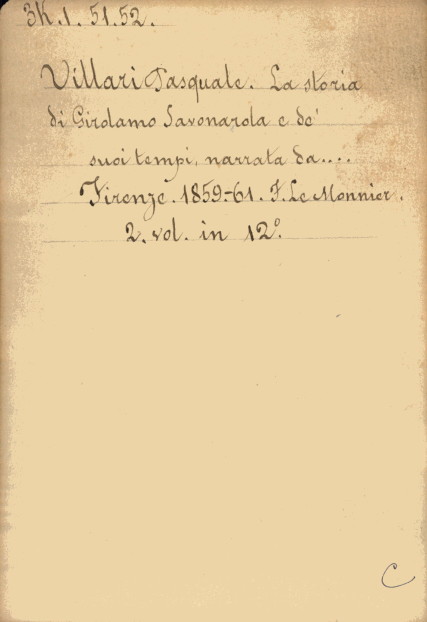 3K.1.51.52.
Villari Pasquale. La storia
di Girolamo Savonarola e de'
suoi tempi, narrata da....
Firenze. 1859-61. F. Le Monnier.
2. vol. in 12º.
C